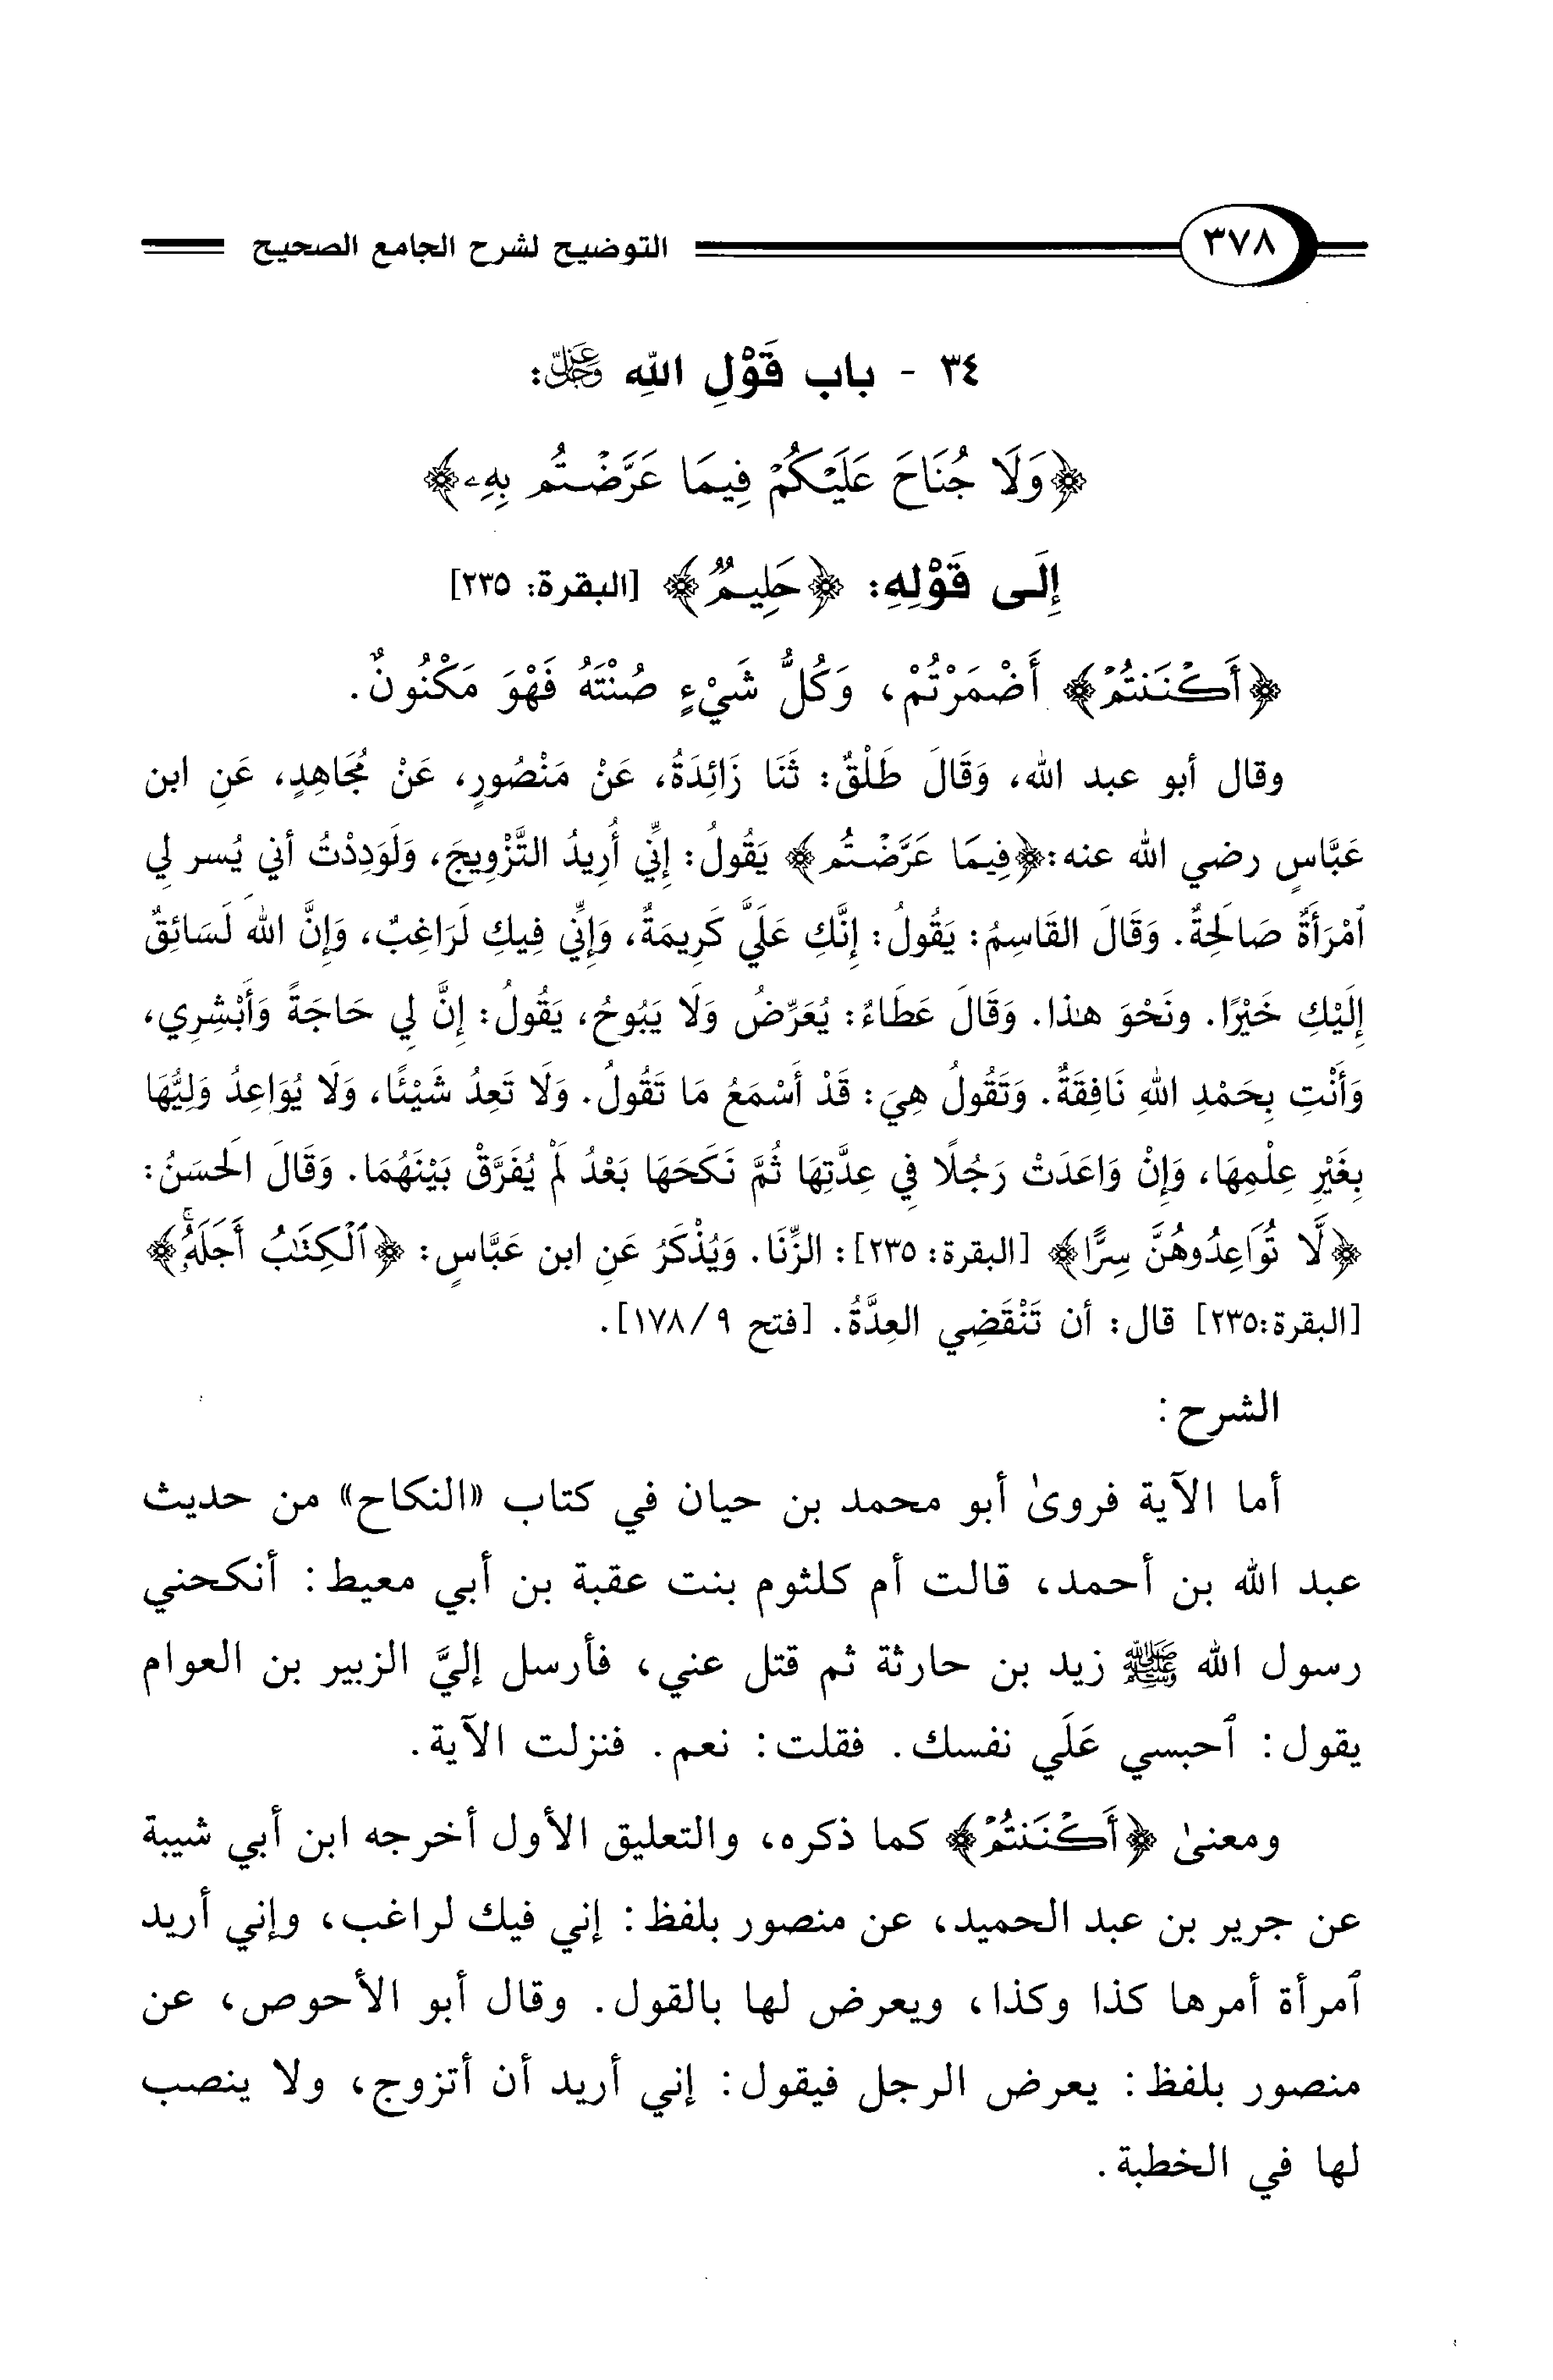 ٣٧٨ التوضيح لشرح الجامع الصحيح
٣٤ - باب قَوْلِ اللهِ عَزَّ وَجَلَّ:
﴿وَلَا جُنَاحَ عَلَيْكُمْ فِيمَا عَرَّضْتُم بِهِۦ﴾
إِلَى قَوْلِهِ: ﴿حَلِيمٌ﴾ [البقرة: ٢٣٥]
﴿أَكْنَنتُمْ﴾ أَضْمَرْتُمْ، وَكُلُّ شَيْءٍ صُنْتَهُ فَهْوَ مَكْنُونٌ.
وقال أبو عبد الله، وَقَالَ طَلْقٌ: ثَنَا زَائِدَةُ، عَنْ مَنْصُورٍ، عَنْ مُجَاهِدٍ، عَنِ ابن
عَبَّاسٍ رضي الله عنه: ﴿فِيمَا عَرَّضْتُم﴾ يَقُولُ: إِنِّي أُرِيدُ التَّزْوِيجَ، وَلَوَدِدْتُ أني يُسر لِي
ٱمْرَأَةٌ صَالِحَةٌ. وَقَالَ القَاسِمُ: يَقُولُ: إِنَّكِ عَلَيَّ كَرِيمَةٌ، وَإِنِّي فِيكِ لَرَاغِبٌ، وَإِنَّ اللهَ لَسَائِقٌ
إِلَيْكِ خَيْرًا. ونَحْوَ هذا. وَقَالَ عَطَاءٌ: يُعَرِّضُ وَلَا يَبُوحُ، يَقُولُ: إِنَّ لِي حَاجَةً وَأَبْشِرِي،
وَأَنْتِ بِحَمْدِ اللهِ نَافِقَةٌ. وَتَقُولُ هِيَ: قَدْ أَسْمَعُ مَا تَقُولُ. وَلَا تَعِدُ شَيْئًا، وَلَا يُوَاعِدُ وَلِيُّهَا
بِغَيْرِ عِلْمِهَا، وَإِنْ وَاعَدَتْ رَجُلًا فِي عِدَّتِهَا ثُمَّ نَكَحَهَا بَعْدُ لَمْ يُفَرَّقْ بَيْنَهُمَا. وَقَالَ الحَسَنُ:
﴿لَّا تُوَاعِدُوهُنَّ سِرًّا﴾ [البقرة: ٢٣٥]: الزِّنَا. وَيُذْكَرُ عَنِ ابن عَبَّاسٍ: ﴿ٱلْكِتَٰبُ أَجَلَهُۥ﴾
[البقرة:٢٣٥] قال: أن تَنْقَضِي العِدَّةُ. [فتح ٩/ ١٧٨].
الشرح:
أما الآية فروىٰ أبو محمد بن حيان في كتاب «النكاح» من حديث
عبد الله بن أحمد، قالت أم كلثوم بنت عقبة بن أبي معيط: أنكحني
رسول الله ﷺ زيد بن حارثة ثم قتل عني، فأرسل إليَّ الزبير بن العوام
يقول: ٱحبسي عَلَي نفسك. فقلت: نعم. فنزلت الآية.
ومعنىٰ ﴿أَكْنَنتُمْ﴾ كما ذكره، والتعليق الأول أخرجه ابن أبي شيبة
عن جرير بن عبد الحميد، عن منصور بلفظ: إني فيك لراغب، وإني أريد
ٱمرأة أمرها كذا وكذا، ويعرض لها بالقول. وقال أبو الأحوص، عن
منصور بلفظ: يعرض الرجل فيقول: إني أريد أن أتزوج، ولا ينصب
لها في الخطبة.